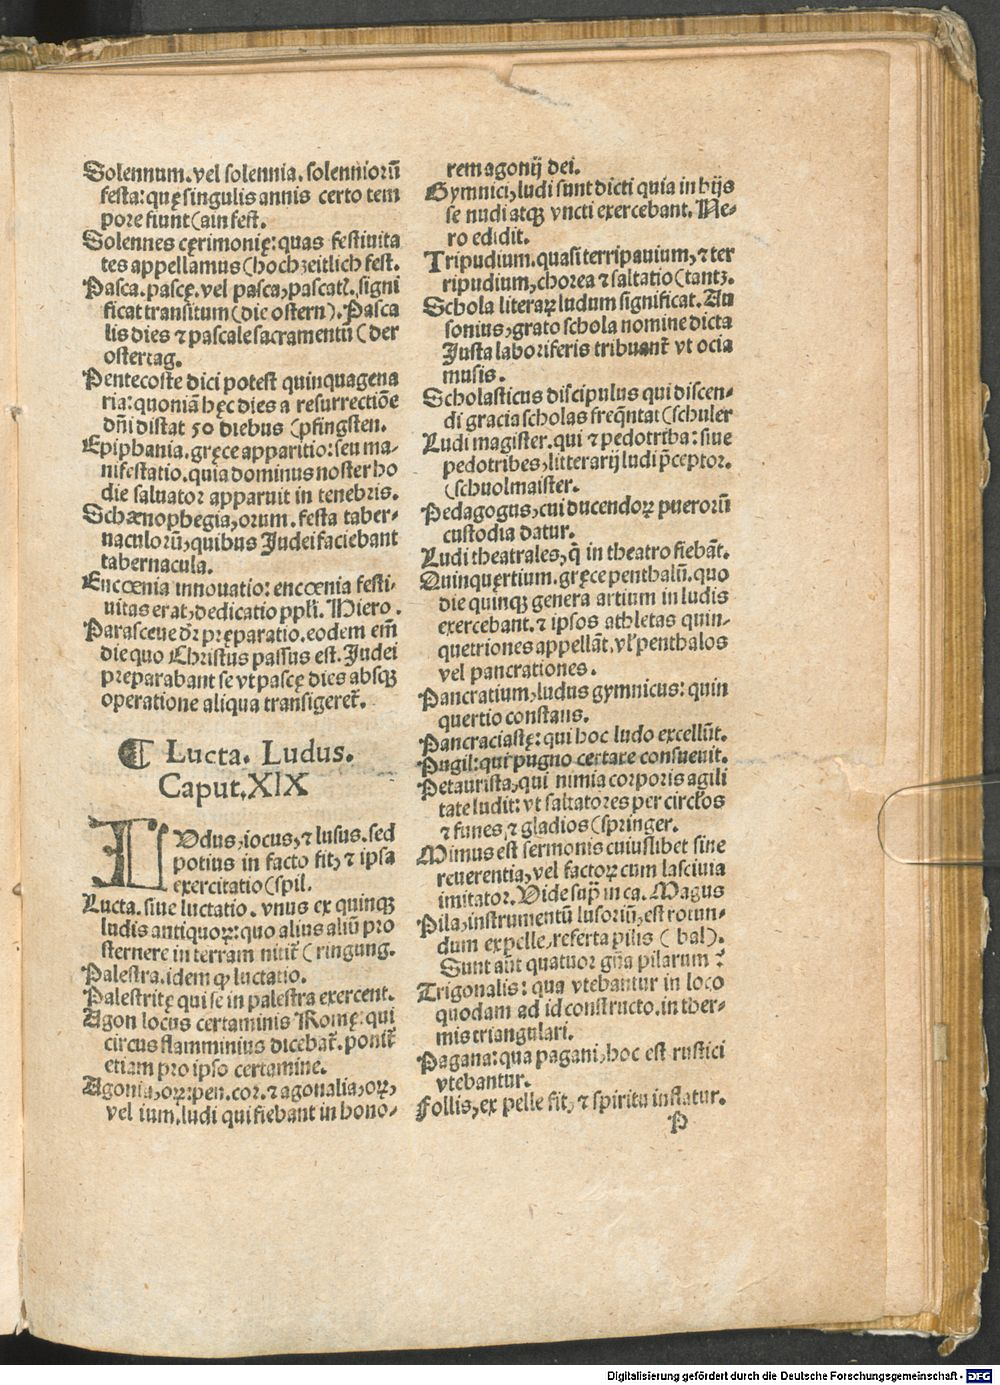 Solennum. vel solennia. solenniorū
festa: quę singulis annis certo tem
pore fiunt (ain fest.
Solennes cęrimonię: quas festiuita
tes appellamus (hochzeitlich fest.
Pasca. pascę. vel pasca, pascatꝭ. signi
ficat transitum (die ostern). Pasca
lis dies ⁊ pascale sacramentū (der
ostertag.
Pentecoste dici potest quinquagena
ria: quoniā hęc dies a resurrectiōe
dñi distat 50 diebus (pfingsten.
Epiphania. gręce apparitio: seu ma-
nifestatio. quia dominus noster ho
die saluator apparuit in tenebris.
Schænophegia, orum. festa taber-
naculorū, quibus Judei faciebant
tabernacula.
Encœnia innouatio: encœnia festi-
uitas erat, dedicatio ppli. Hiero.
Parasceue dr̄ pręparatio. eodem em̄
die quo Christus passus est. Judei
preparabant se vt pascę dies absqꝫ
operatione aliqua transigeret̄.
¶ Lucta. Ludus.
Caput. XIX
LVdus, iocus, ⁊ lusus. sed
potius in facto fit, ⁊ ipsa
exercitatio (spil.
Lucta. siue luctatio. vnus ex quinqꝫ
ludis antiquoꝝ: quo alius aliū pro
sternere in terram nitit̄ (ringung.
Palestra. idem qꝫ luctatio.
Palestritę qui se in palestra exercent.
Agon locus certaminis Romę: qui
circus flamminius dicebat̄. ponit̄
etiam pro ipso certamine.
Agonia, oꝝ: pen. cor. ⁊ agonalia, oꝝ,
vel ium. ludi qui fiebant in hono-
rem agonij dei.
Gymnici, ludi sunt dicti quia in hijs
se nudi atqꝫ vncti exercebant. Ne-
ro edidit.
Tripudium. quasi terripauium, ⁊ ter
ripudium, chorea ⁊ saltatio (tantz.
Schola literaꝝ ludum significat. Au
sonius, grato schola nomine dicta
Justa laboriferis tribuant̄ vt ocia
musis.
Scholasticus discipulus qui discen-
di gracia scholas freq̄ntat (schuler
Ludi magister. qui ⁊ pedotriba: siue
pedotribes, litterarij ludi p̄ceptor.
(schuolmaister.
Pedagogus, cui ducendoꝝ pueroꝛū
custodia datur.
Ludi theatrales, q̄ in theatro fiebāt.
Quinquęrtium. gręce penthalū. quo
die quinqꝫ genera artium in ludis
exercebant. ⁊ ipsos athletas quin-
quetriones appellāt. vl̓ penthalos
vel pancrationes.
Pancratium, ludus gymnicus: quin
quertio constans.
Pancraciastę: qui hoc ludo excellūt.
Pugil: qui pugno certare consueuit.
Petaurista, qui nimia corporis agili
tate ludit: vt saltatores per circl̓os
⁊ funes, ⁊ gladios (springer.
Mimus est sermonis cuiuslibet sine
reuerentia, vel factoꝝ cum lasciuia
imitator. Vide sup̄ in ca. Magus
Pila, instrumentū lusoriū, est rotun-
dum ex pelle, referta pilis (bal).
Sunt aūt quatuor gn̄a pilarum:
Trigonalis: qua vtebantur in loco
quodam ad id constructo. in ther-
mis triangulari.
Pagana: qua pagani, hoc est rustici
vtebantur.
Follis, ex pelle fit, ⁊ spiritu inflatur.
P
Digitalisierung gefördert durch die Deutsche Forschungsgemeinschaft - DFG